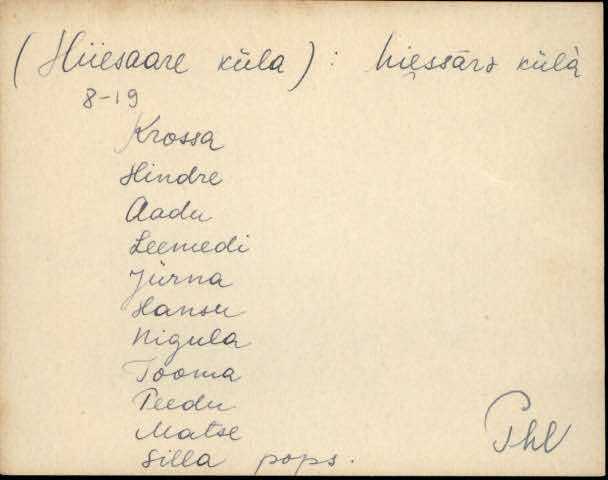 (Hiiesaare küla): hìe̮ssārə külà
8-19
Krossa
Hindre
Aadu
Leemedi
Jürna
Hansu
Nigula
Tooma
Peedu
Matse
Silla pops.
Phl